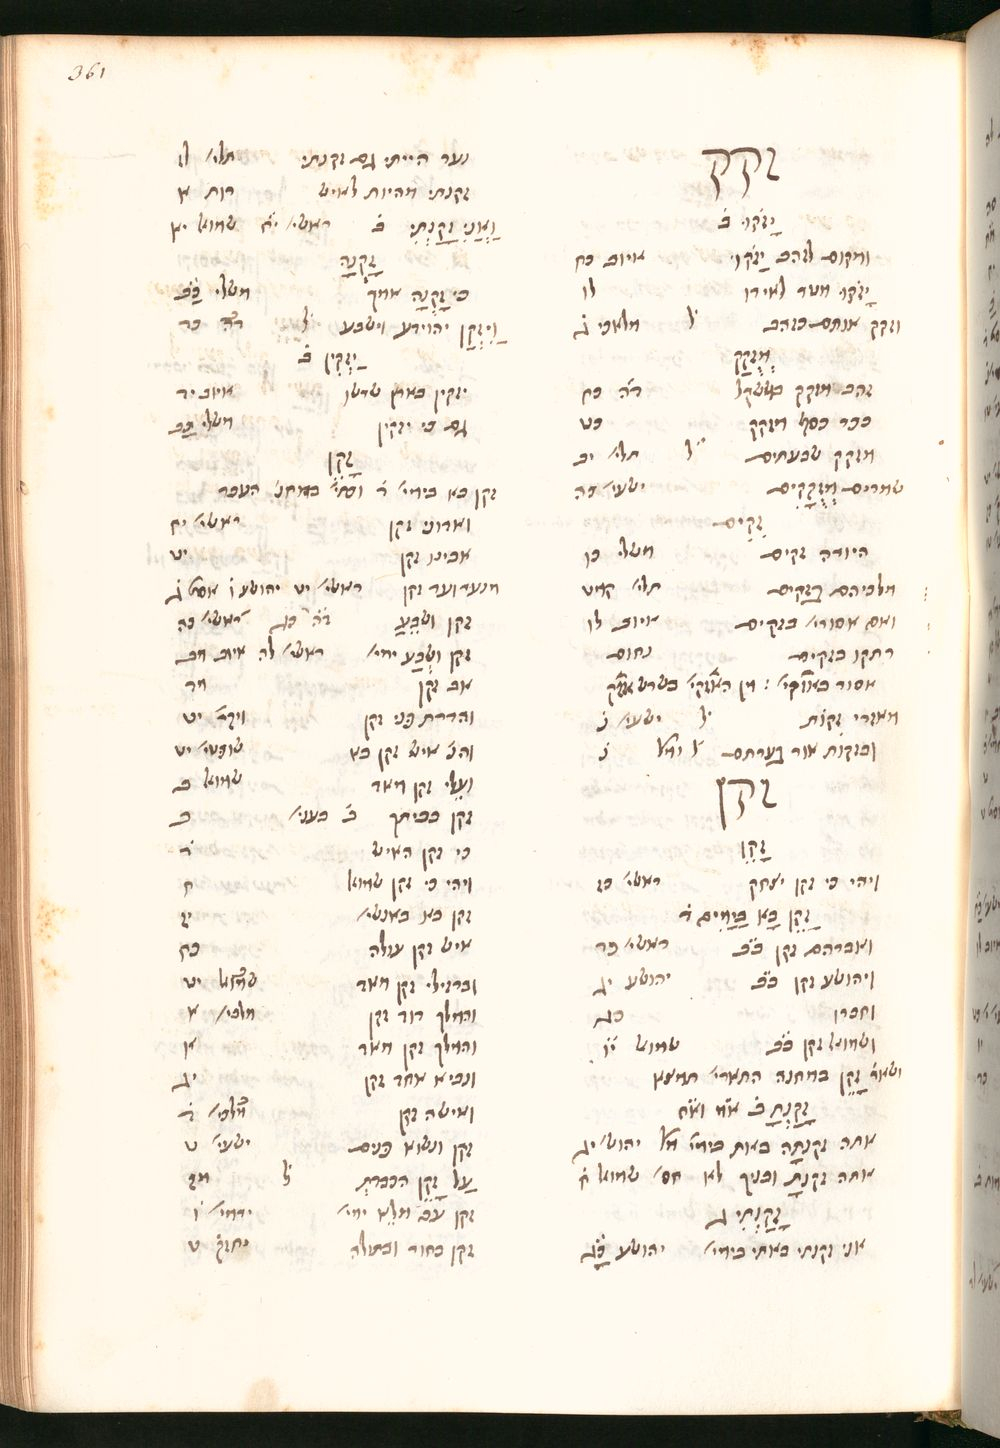 361
זקק
יָזֹקּוּ ב̇
ומקום לזהב יָזֹקוּ איוב כח
יָזֹקּוּ מטר לאידו לו
וזקק אותם כזהב ל̇ מלאכי ג
מְזֻקָּק
זהב מזוקק במשקל ד̇ה כח
ככר כסף מזקק כט
מזקק שבעתים ל̇ תלי׳ יב
שמרים מְזֻקָּקִים ישעי׳ כה
זִקִים
היורה זקים משלי כו
מלכיהם בְּזִקִים תלי׳ קמט
ואם אסורי׳ בזקים איוב לו
רתקו בזקים נחום
אסור באזקי׳ : מן האזקי׳ בשרש אזק
מאזרי זִקוֹת ל̇ ישעי׳ נ
ובזקות אור בערתם ל̇ נ
זקן
זָקֵן
ויהי כי זקן יצחק ראשי׳ כז
זָקֵן בָּא בַּיָמִים ד̇
ואברהם זקן בׄבׄ ראשי׳ כד
ויהושע זקן בׄבׄ יהושע יג
וחברו כג
ושמואל זקן בׄבׄ שמואל
זָקֵן במחנה
זָקַנְתָּ ב̇
אתה זקנתָּה באת בימי׳ יהוש׳ יג
אתה זקנתָּ ובניך לא שמואל ח
זָקַנְתִּי ג
אני זקנתי באתי בימי׳ יהושע כג
נער הייתי גם זקנתי תלי׳ לז
זקנתי מהיות לאיש רות א
וַאֲנִי זָקַנְתִּי ב̇ ראשי׳ יח שמואל יב
זָקְנָה
כי זָקְנָה אמך משלי כג
וַיִּזְקַן יהוידע וישבע ל̇ ד̇ה כד
יַזְקִין ב̇
יזקין בארץ שרשו איוב יד
גם כי יזקין משלי כב
זָקֵן
זקן בא בימי׳ ד̇
ואדוני זקן ראשי׳ יח
אבינו זקן יט
מנער ועד זקן ראשי׳ יט יהושע ו אסתר ג
זקן וְשָׂבֵעַ ראשי׳ כה
זקן וּשְׂבַע ימי׳ ראשי׳ לה איוב מב
אב זקן מד
והדרת פני זקן ויקר׳ יט
והנ׳ איש זקן בא שופטי׳ יט
ועלי זקן מאד שמואל ב
זקן בביתך ב
כי זקן האיש ד
ויהי כי זקן שמואל ח
זקן בא באנשי׳ יז
איש זקן עולה כח
וברזילי זקן מאד שמואל יט
והמלך דוד זקן מלכי׳ א
והמלך זקן מאד
ונביא אחד זקן יג
ואישה זקן מלכי׳ ד
זקן ונשוא פנים ישעי׳ ט
עַל זָקֵן הכבדת ל̇ מז
זקן עם מְלֵא ימי׳ ירמי׳ ו
זקן בחור ובתולה יחזק׳ ט